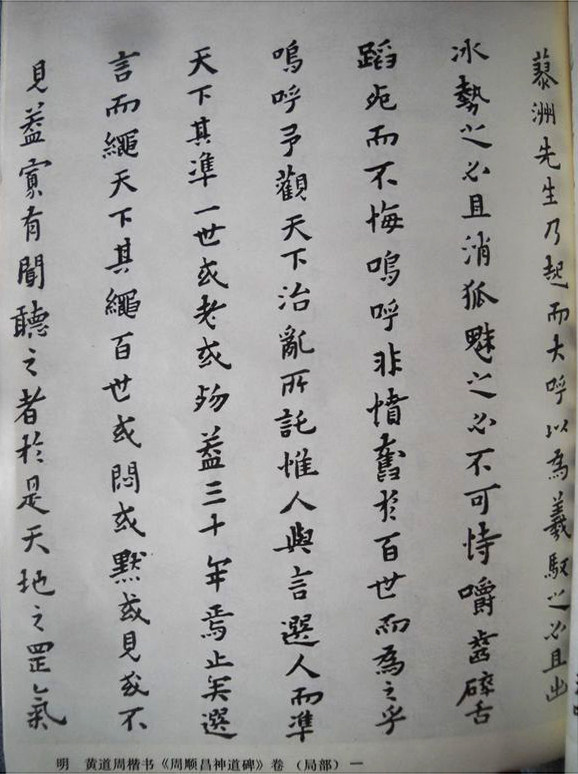 蓼洲先生乃起而大呼以為羲馭之必且出
冰勢之必且消狐魅之必不可恃嚼齒碎舌
蹈死而不悔嗚呼非憤奮於百世而為之乎
嗚呼予觀天下治亂所託惟人與言選人而準
天下其準一世或老或殀蓋三十年焉止矣選
言而繩天下其繩百世或悶或默或見或不
見蓋實有聞聽之者於是天地之罡氣
明 黄道周楷书《周顺昌神道碑》卷 （局部） 一